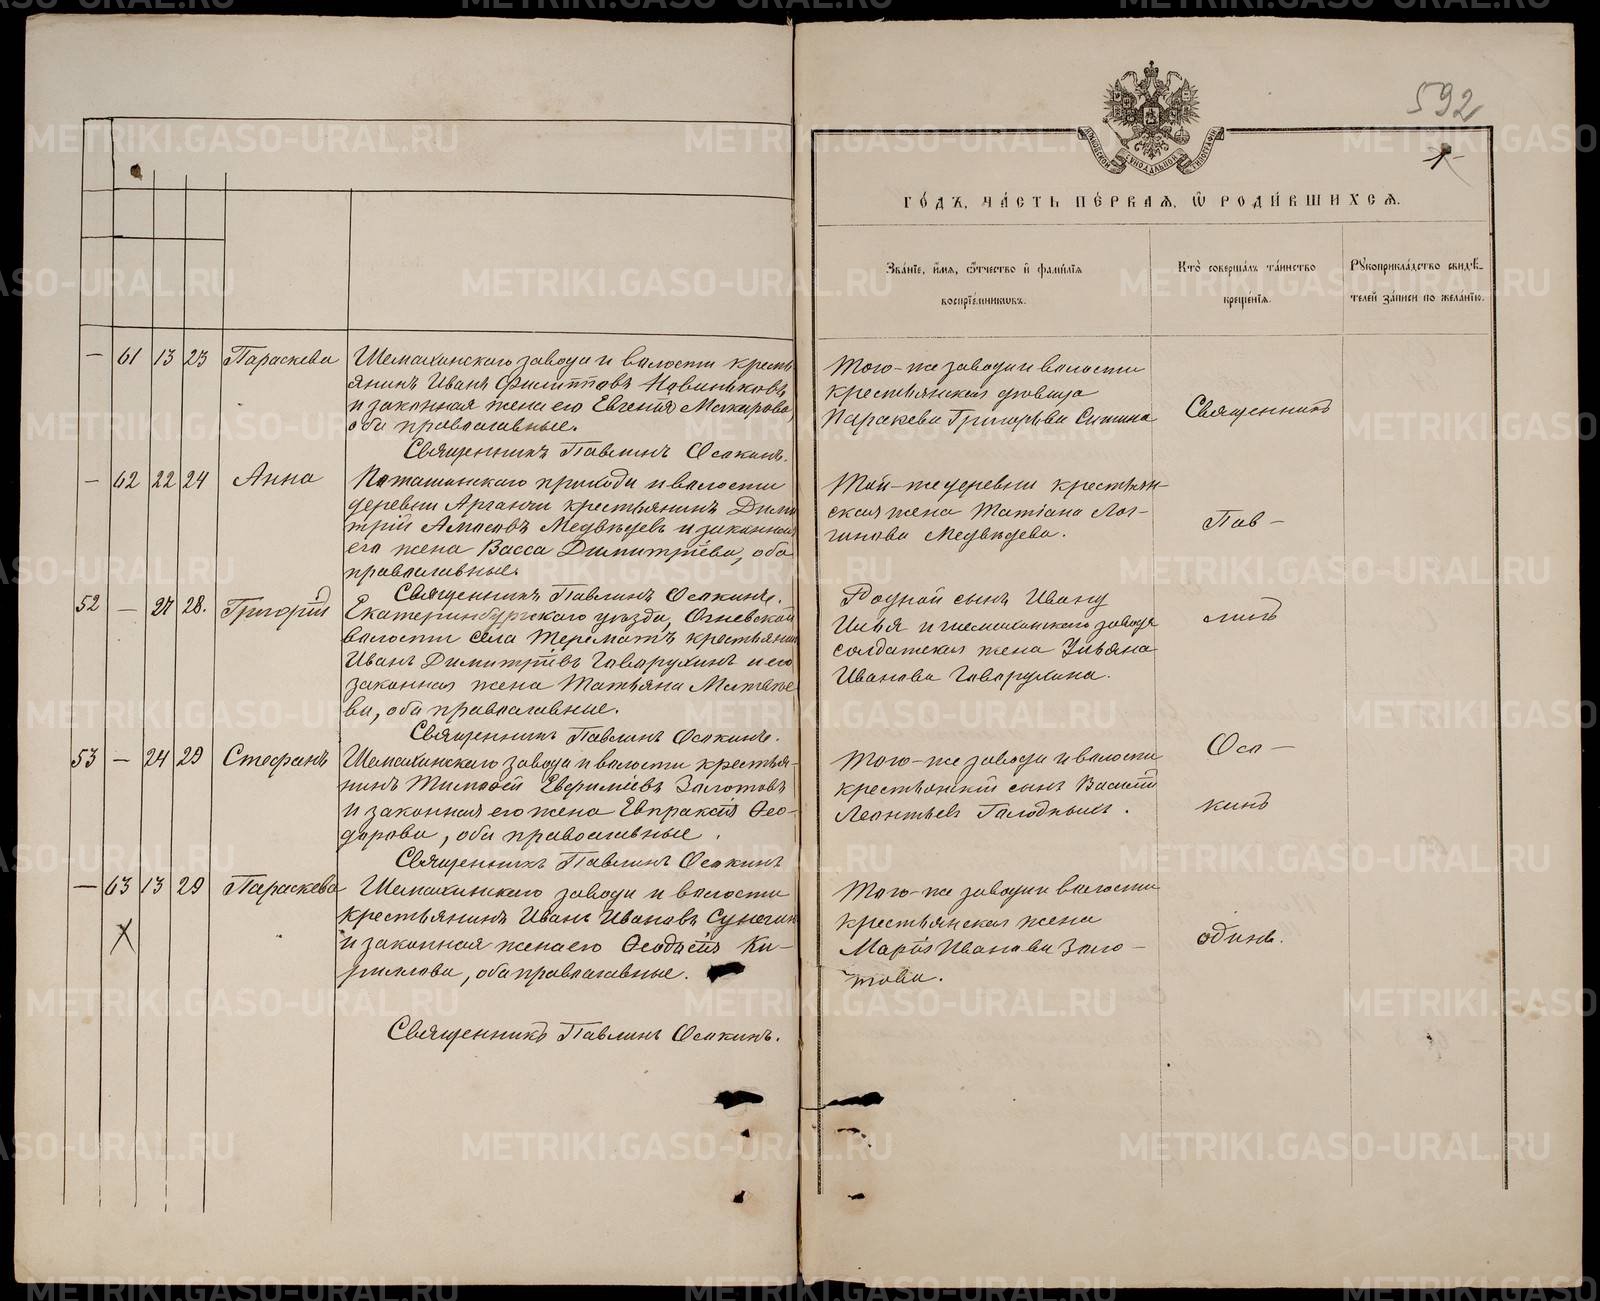 592
МОСКОВСКОЙ СѴНОДАЛЬНОЙ ТИПОГРАФІИ
ГО́ДЪ, ЧА́СТЬ ПЕ́РВАѦ, Ѡ҆ РОДИ́ВШИХСѦ.
Зва́нїе, и҆́мѧ, ѻ҆́тчество и҆ фами́лїѧ
воспрїе́мникѡвъ.
Кто̀ соверша́лъ та́инство
креще́нїѧ.
Рꙋкоприкла́дство свидѣ́-
телей за́писи по жела́нїю.
— 61 13 23 Параскева
Шемахинскаго завода и волости кресть
янинъ Иванъ Филипповъ Новиньковъ
и законная жена его Евгенія Макарова,
оба православные.
Священникъ Павлинъ Осокинъ.
Того-же завода и волости
крестьянская девица
Параскева Григорьева
Священникъ
— 62 22 24 Анна
Поташинскаго прихода и волости
деревни Арганчи крестьянинъ Дими
трій Амосовъ Медвѣдевъ и законная
его жена Васса Димитріева, оба
православные.
Священникъ Павлинъ Осокинъ.
Той-же деревни крестьян-
ская жена Татіана Лог-
гинова Медвѣдева.
Пав-
52 — 27 28. Григорій
Екатеринбургскаго уѣзда, Огневской
волости села крестьянинъ
Иванъ Димитріевъ Говорухинъ и его
законная жена Татьяна Матвѣе
ва, оба православные.
Священникъ Павлинъ Осокинъ.
Родной сынъ Ивану
Илья и шемахинскаго завода
солдатская жена Ульяна
Иванова Говорухина.
линъ
53 — 24 29 Стефанъ
Шемахинскаго завода и волости крестья-
нинъ Тимофей Евфиміевъ Золотовъ
и законная его жена Евпраксія Ѳео-
дорова, оба православные.
Священникъ Павлинъ Осокинъ
Того-же завода и волости
крестьянскій сынъ Василій
Леонтьевъ Голодныхъ.
Осо-
кинъ
— 63 13 29 Параскева
Шемахинскаго завода и волости
крестьянинъ Иванъ Ивановъ Сунегин
и законная жена его Ѳеодосія Ки-
риллова, оба православные.
Священникъ Павлинъ Осокинъ.
Того-же завода и волости
крестьянская жена
Марія Иванова Золо-
това.
одинъ.
METRIKI.GASO-URAL.RU